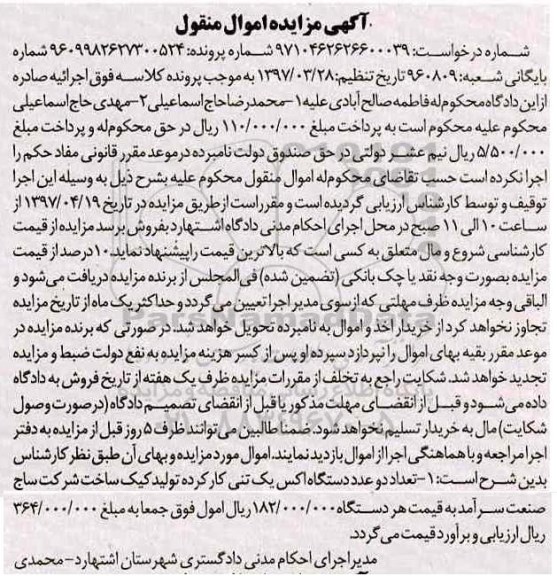 آگهی مزایده اموال منقول
شماره درخواست: ۹۷۱۰۴۶۲۶۲۶۶۰۰۰۳۹ شماره پرونده: ۹۶۰۹۹۸۲۶۲۷۳۰۰۵۲۴ شماره
بایگانی شعبه: ۹۶۰۸۰۹ تاریخ تنظیم: ۱۳۹۷/۰۳/۲۸ به موجب پرونده کلاسه فوق اجرائیه صادره
از این دادگاه محکوم‌له فاطمه صالح آبادی علیه ۱- محمدرضا حاج اسماعیلی ۲- مهدی حاج اسماعیلی
محکوم علیه محکوم است به پرداخت مبلغ ۱۱۰/۰۰۰/۰۰۰ ریال در حق محکوم‌له و پرداخت مبلغ
۵/۵۰۰/۰۰۰ ریال نیم عشر دولتی در حق صندوق دولت نامبرده در موعد مقرر قانونی مفاد حکم را
اجرا نکرده است حسب تقاضای محکوم‌له اموال منقول محکوم علیه بشرح ذیل به وسیله این اجرا
توقیف و توسط کارشناس ارزیابی گردیده است و مقرر است از طریق مزایده در تاریخ ۱۳۹۷/۰۴/۱۹ از
ساعت ۱۰ الی ۱۱ صبح در محل اجرای احکام مدنی دادگاه اشتهارد بفروش برسد مزایده از قیمت
کارشناسی شروع و مال متعلق به کسی است که بالاترین قیمت را پیشنهاد نماید. ۱۰درصد از قیمت
مزایده بصورت وجه نقد یا چک بانکی (تضمین شده) فی‌المجلس از برنده مزایده دریافت می‌شود و
الباقی وجه مزایده ظرف مهلتی که از سوی مدیر اجرا تعیین می گردد و حداکثر یک ماه از تاریخ مزایده
تجاوز نخواهد کرد از خریدار اخذ و اموال به نامبرده تحویل خواهد شد. در صورتی که برنده مزایده در
موعد مقرر بقیه بهای اموال را نپردازد سپرده او پس از کسر هزینه مزایده به نفع دولت ضبط و مزایده
تجدید خواهد شد. شکایت راجع به تخلف از مقررات مزایده ظرف یک هفته از تاریخ فروش به دادگاه
داده می‌شود و قبل از انقضای مهلت مذکور یا قبل از انقضای تصمیم دادگاه (در صورت وصول
شکایت) مال به خریدار تسلیم نخواهد شود. ضمنا طالبین می‌توانند ظرف ۵ روز قبل از مزایده به دفتر
اجرا مراجعه و با هماهنگی اجرا از اموال بازدید نمایند. اموال مورد مزایده و بهای آن طبق نظر کارشناس
بدین شرح است: ۱- تعداد دو عدد دستگاه اکس یک تنی کارکرده تولید کیک ساخت شرکت ساج
صنعت سرآمد به قیمت هر دستگاه ۱۸۲/۰۰۰/۰۰۰ ریال امول فوق جمعا به مبلغ ۳۶۴/۰۰۰/۰۰۰
ریال ارزیابی و برآورد قیمت می گردد.
مدیر اجرای احکام مدنی دادگستری شهرستان اشتهارد- محمدی